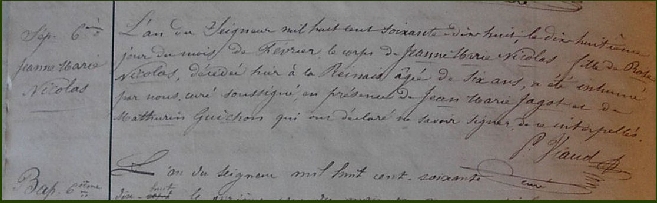 Sep. 6è
Jeanne Marie
Nicolas
L'an du Seigneur mil huit cent soixante-dix huit le dix huitième
jour du mois de Fevrier le corps de Jeanne Marie Nicolas fille de
Nicolas, décédée hier à la âgé de six ans, a été inhumé
par nous, curé soussigné en présence de Jean Marie Jagot et de
Mathurin Guichon qui ont déclaré ne savoir signer de ce interpellés.
Viaud
curé
Bap. 6
L'an du Seigneur mil huit cent soixante
dix huit le